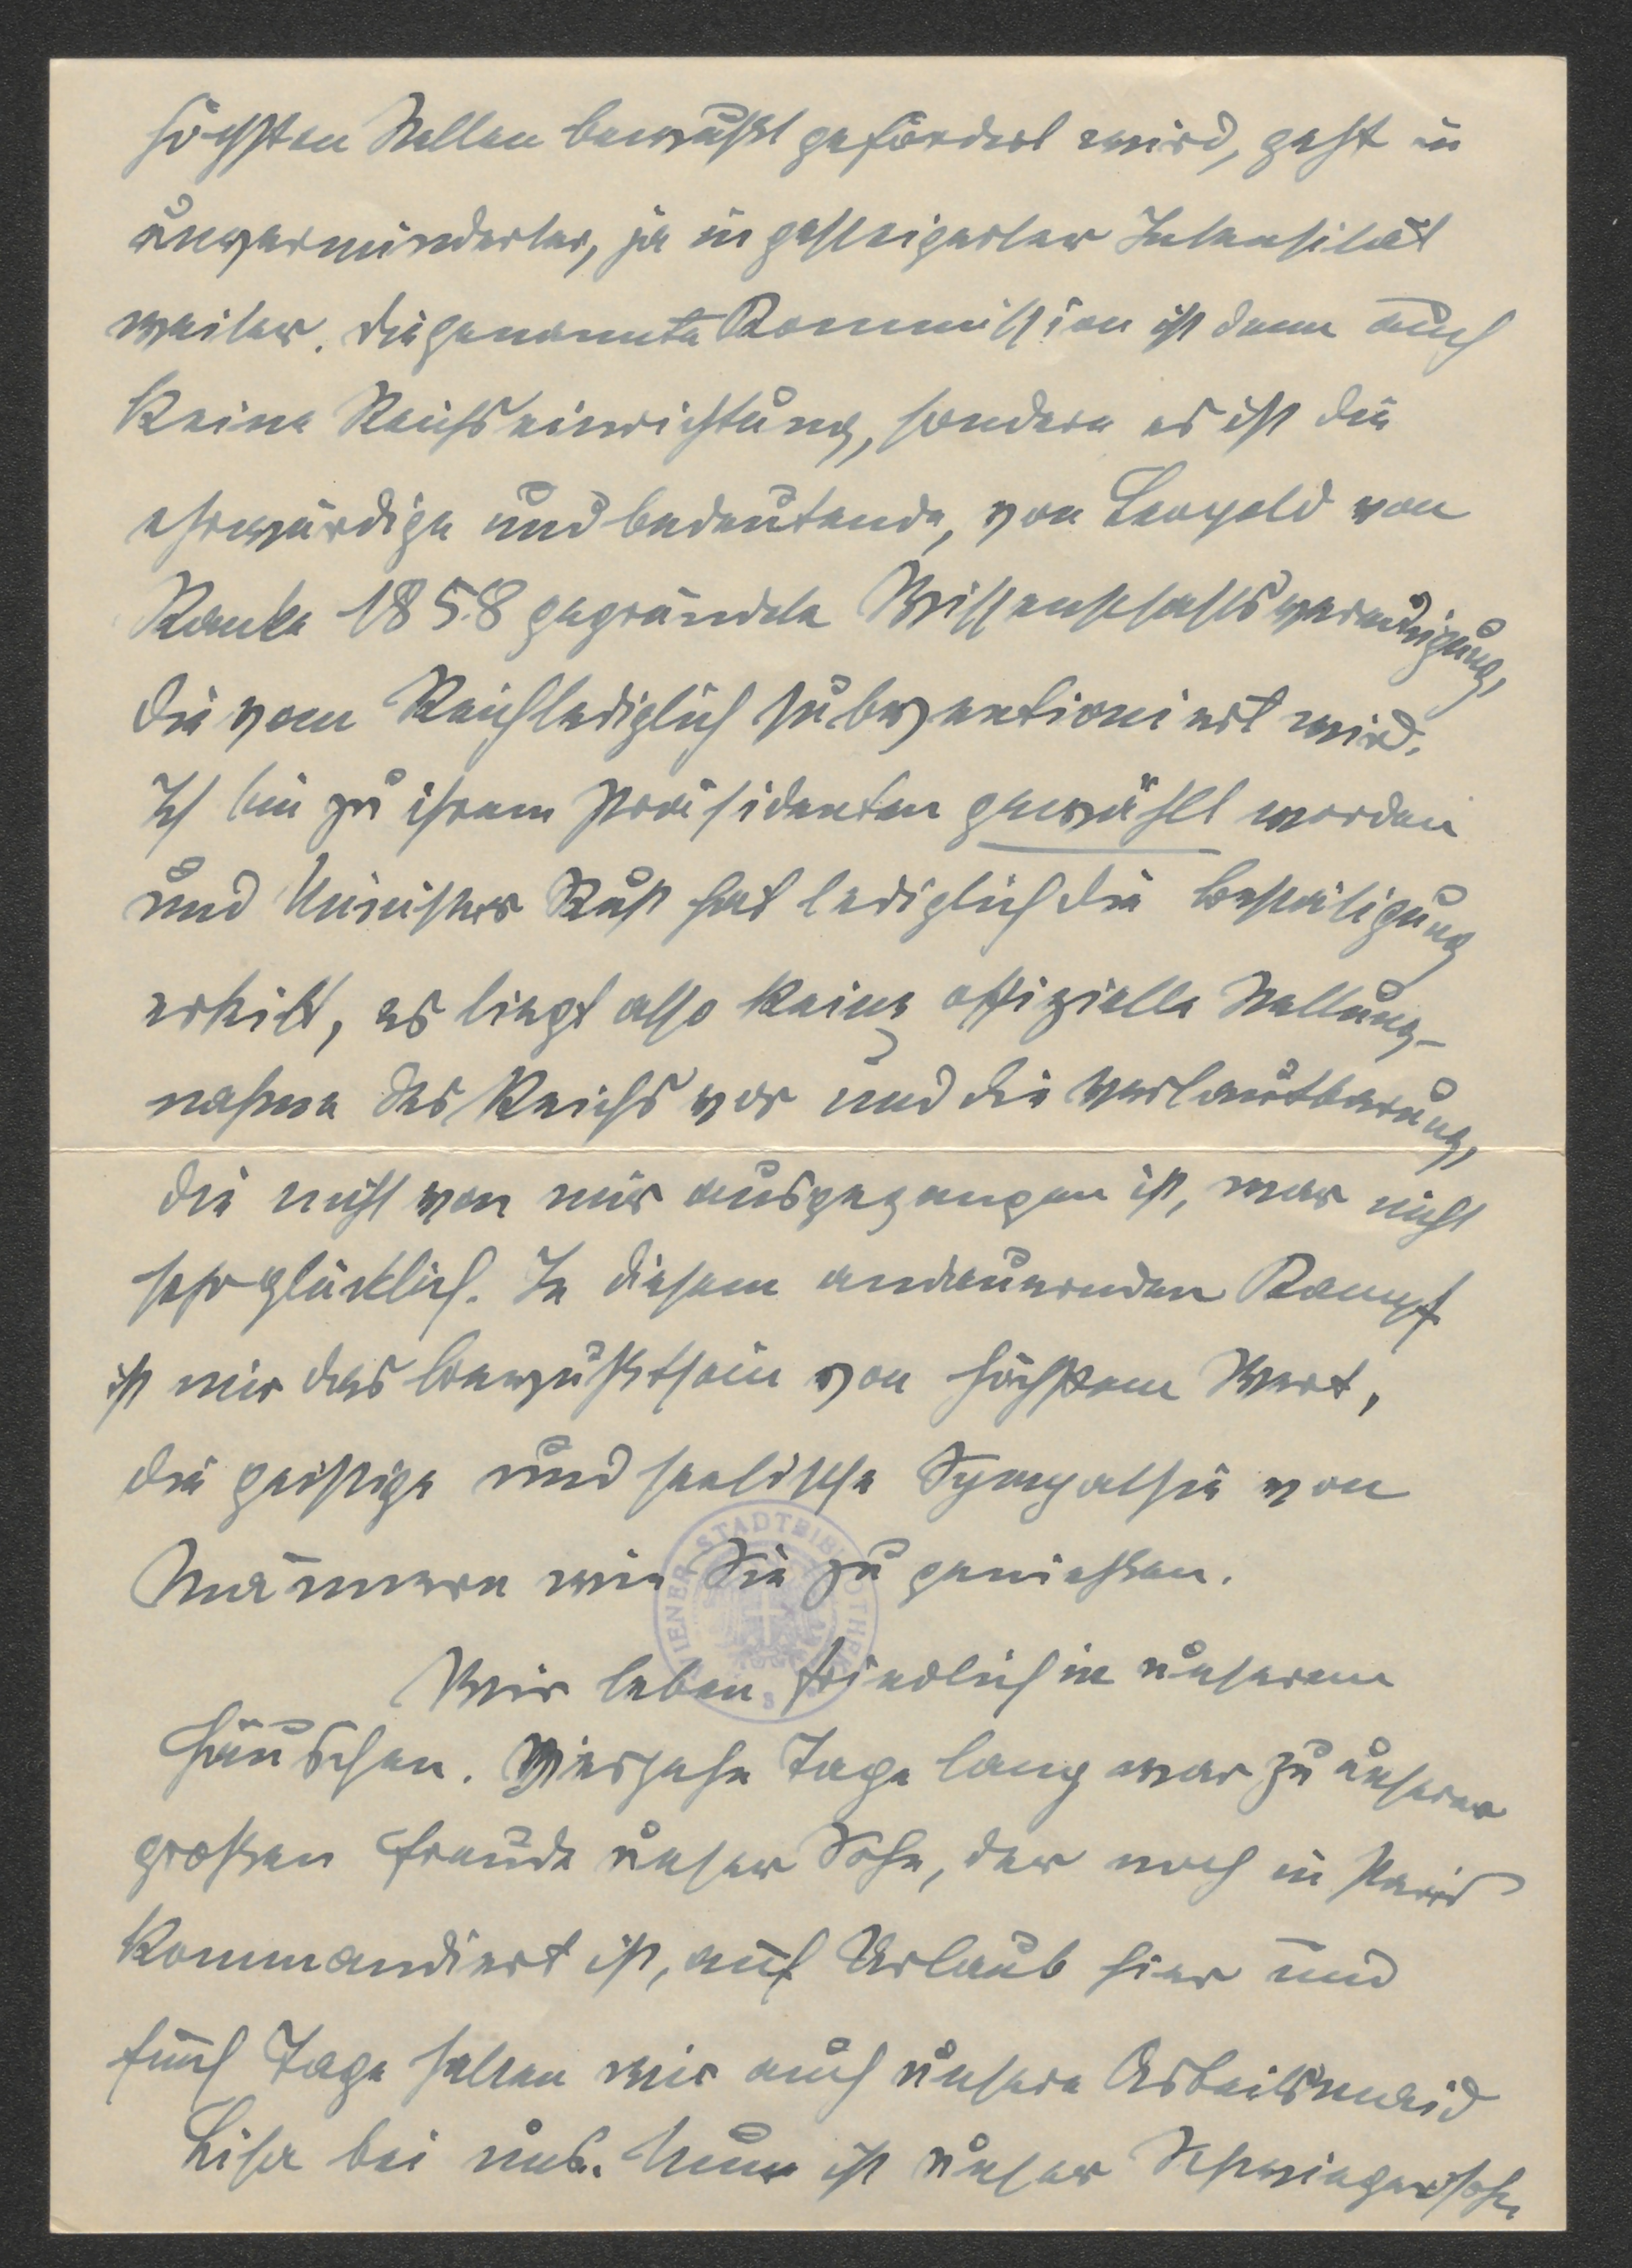 höchsten Stellen bewußt gefördert wird, geht in
unverminderter, ja in gesteigerter Intensität
weiter. Die genannte Kommission ist denn auch
keine Reichseinrichtung, sondern es ist die
ehrwürdige und bedeutende, von Leopold von
Ranke 1858 gegründete Wissenschaftsvereinigung,
die vom Reich lediglich subventioniert wird.
Ich bin zu ihrem Präsidenten gewählt worden
und Minister Rust hat lediglich die Bestätigung
erteilt, es liegt also keine offizielle Stellung-
nahme des Reichs vor und die Verlautbarung,
die nicht von mir ausgegangen ist, war nicht
sehr glücklich. In diesem andauernden Kampf
ist mir das Bewußtsein von höchstem Wert,
die geistige und seelische Sympathie von
Männern wie Sie zu genießen.
WIENER STADTBIBLIOTHEK
Wir leben friedlich in unserem
Häuschen. Vierzehn Tage lang war zu unserer
großen Freude unser Sohn, der noch in Paris
kommandiert ist, auf Urlaub hier und
fünf Tage hatten wir auch unsere Arbeitsmaid
Lisa bei uns. Nun ist unser Schwiegersohn